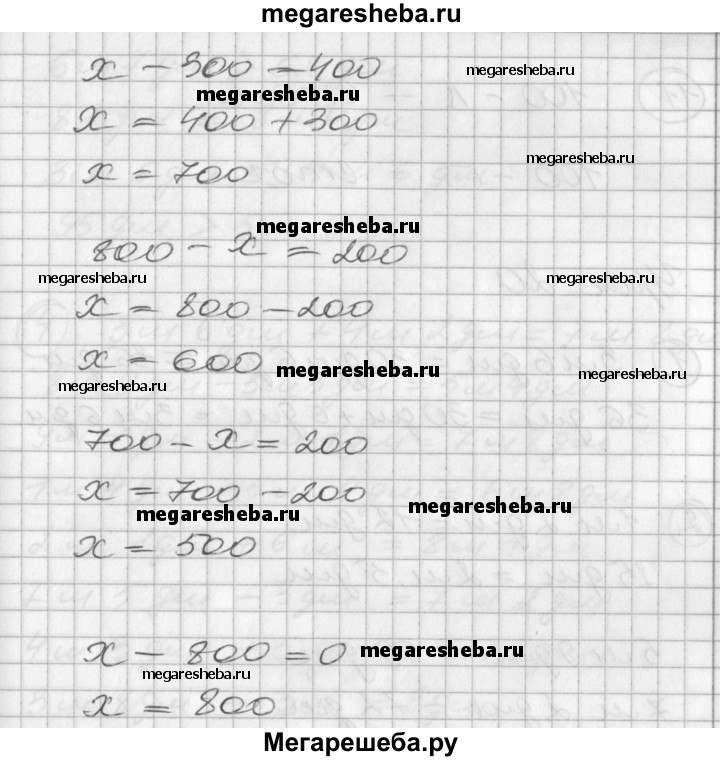 megaresheba.ru
x - 300 = 400
megaresheba.ru
megaresheba.ru
x = 400 + 300
megaresheba.ru
x = 700
megaresheba.ru
800 - x = 200
megaresheba.ru megaresheba.ru
x = 800 - 200
x = 600
megaresheba.ru megaresheba.ru
megaresheba.ru
700 - x = 200
x = 700 - 200
megaresheba.ru megaresheba.ru
x = 500
x - 800 = 0
megaresheba.ru
megaresheba.ru
x = 800
Мегарешеба.ру